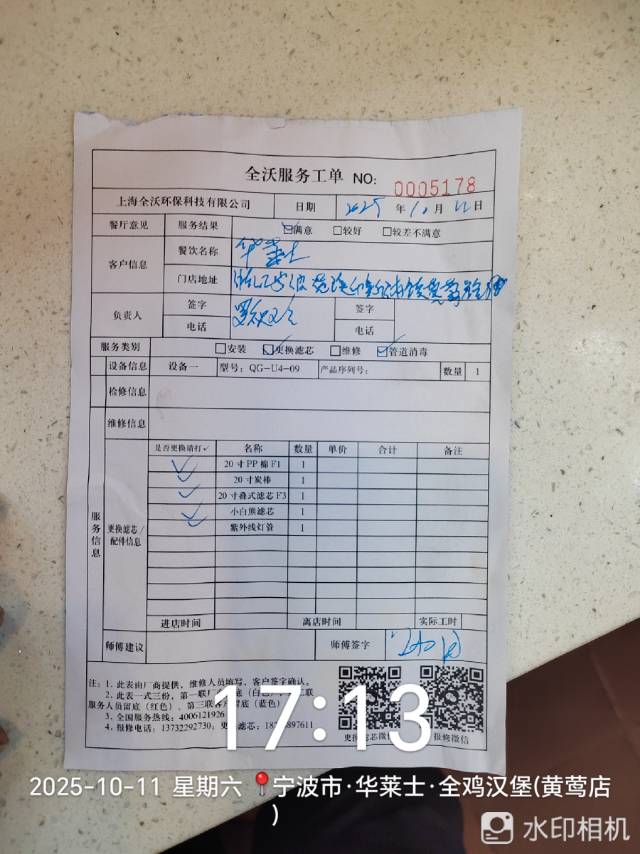 全沃服务工单 NO: 0005178
上海全沃环保科技有限公司 日期 2025 年 10 月 11 日
餐厅意见 服务结果 ☑满意 □较好 □较差不满意
客户信息 餐饮名称 华莱士
门店地址
负责人 签字 签字
电话 电话
服务类别 □安装 ☑更换滤芯 □维修 ☑管道消毒
设备信息 设备一 型号：QG-U4-09 产品序列号： 数量 1
检修信息
维修信息
服务信息 更换滤芯/配件信息
是否更换请打✓ 名称 数量 单价 合计 备注
✓ 20寸PP棉F1 1
✓ 20寸炭棒 1
✓ 20寸叠式滤芯F3 1
✓ 小白熊滤芯 1
紫外线灯管 1
进店时间 离店时间 实际工时
师傅建议 师傅签字
注：1. 此表由厂商提供，维修人员填写，客户签字确认。
2. 此表一式三份，第一联厂 底（白色 联
服务人员留底（红色）、第三联客户留底（蓝色）
3. 全国服务热线：4006121926
4. 报修电话：13732292730；更 滤芯：18 897611
更换滤芯微信 报修微信
17:13
2025-10-11 星期六 📍宁波市·华莱士·全鸡汉堡(黄莺店
)
水印相机